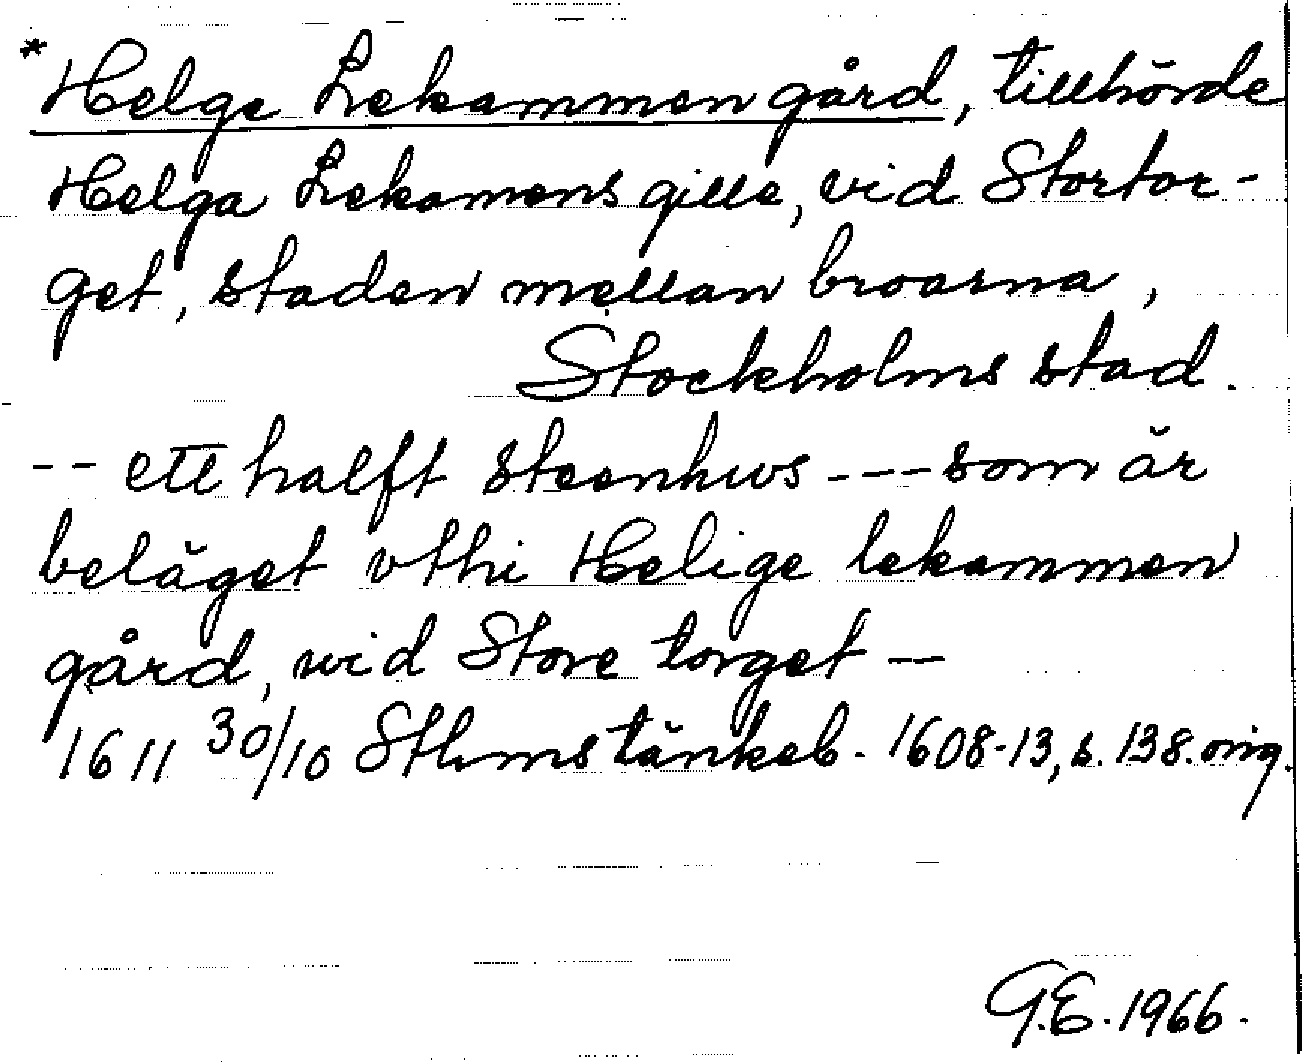 *Helge Lekammen gård, tillhörde
Helga Lekamens gille, vid Stortor-
get, staden mellan broarna,
Stockholms stad.
-- ett halft steenhws --- som är
beläget vthi Helige lekammen
gård, wid Store torget --
1611 30/10 Sthms tänkeb. 1608-13, s. 138. orig.
G.E. 1966.